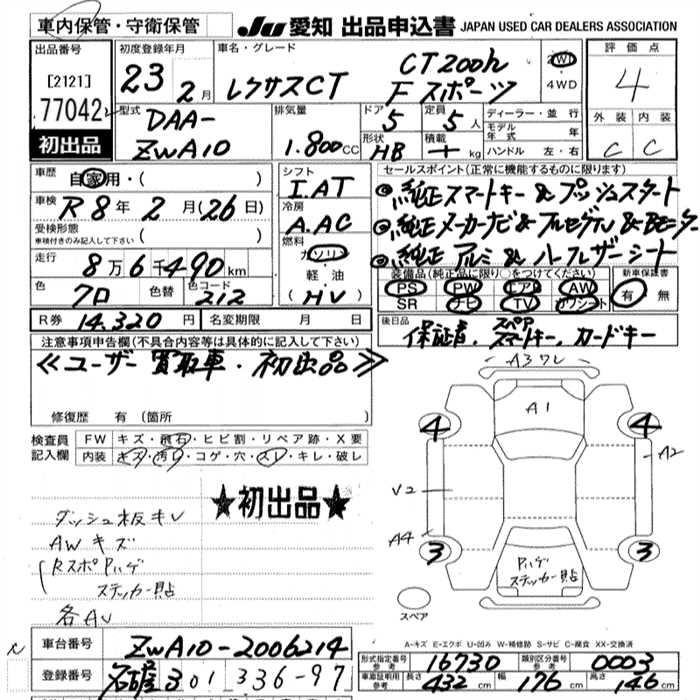 車内保管・守衛保管
JU 愛知 出品申込書 JAPAN USED CAR DEALERS ASSOCIATION
出品番号
[2121]
77042
初出品
初度登録年月
23 2月
車名・グレード
レクサスCT CT200h
Fスポーツ
2WD
4WD
評価点
4
外装 内装
C C
型式
DAA-
ZWA10
排気量
1.800cc
ドア 5
形状 HB
定員 5人
積載 kg
ディーラー・並行
モデル年式 年
ハンドル 左・右
車歴 自家用・( )
車検 R8年2月(26日)
受検形態
車検付きのみ記入して下さい
走行 8万6千490km
色 クロ 色替 色コード 212
R券 14.320円 名変期限 月 日
シフト
I.AT
冷房
A.AC
燃料
ガソリン
軽油
(HV)
セールスポイント(正常に機能するものに限ります)
◎純正スマートキー&プッシュスタート
◎純正メーカーナビ&フルセグTV&Bモーター
◎純正アルミ&ハーフレザーシート
装備品(純正品に限り○をつけてください)
PS PW エアB AW
SR ナビ TV カワシート
新車保証書
有 無
後日品
保証書、スペアスマートキー、カードキー
注意事項申告欄(不具合内容等は具体的に記入して下さい)
≪ユーザー買取車・初出品≫
修復歴 有(箇所
検査員
記入欄
FW キズ・飛石・ヒビ割・リペア跡・X要
内装 キズ・汚れ・コゲ・穴・スレ・キレ・破レ
★初出品★
ダッシュ板キレ
AWキズ
RスポPハゲ
ステッカー貼
各AU
A3ワレ
A1
4 4
A2
V2
A4
3 3
Pハゲ
ステッカー貼
スペア
A-キズ E-エクボ U-凹み W-補修跡 S-サビ C-腐食 XX-交換済
車台番号 ZWA10-2006214
登録番号 名古屋301 336-97
形式指定番号 参考 16730 類別区分番号 参考 0003
車庫証明用 参考 長さ 432cm 幅 176cm 高さ 146cm